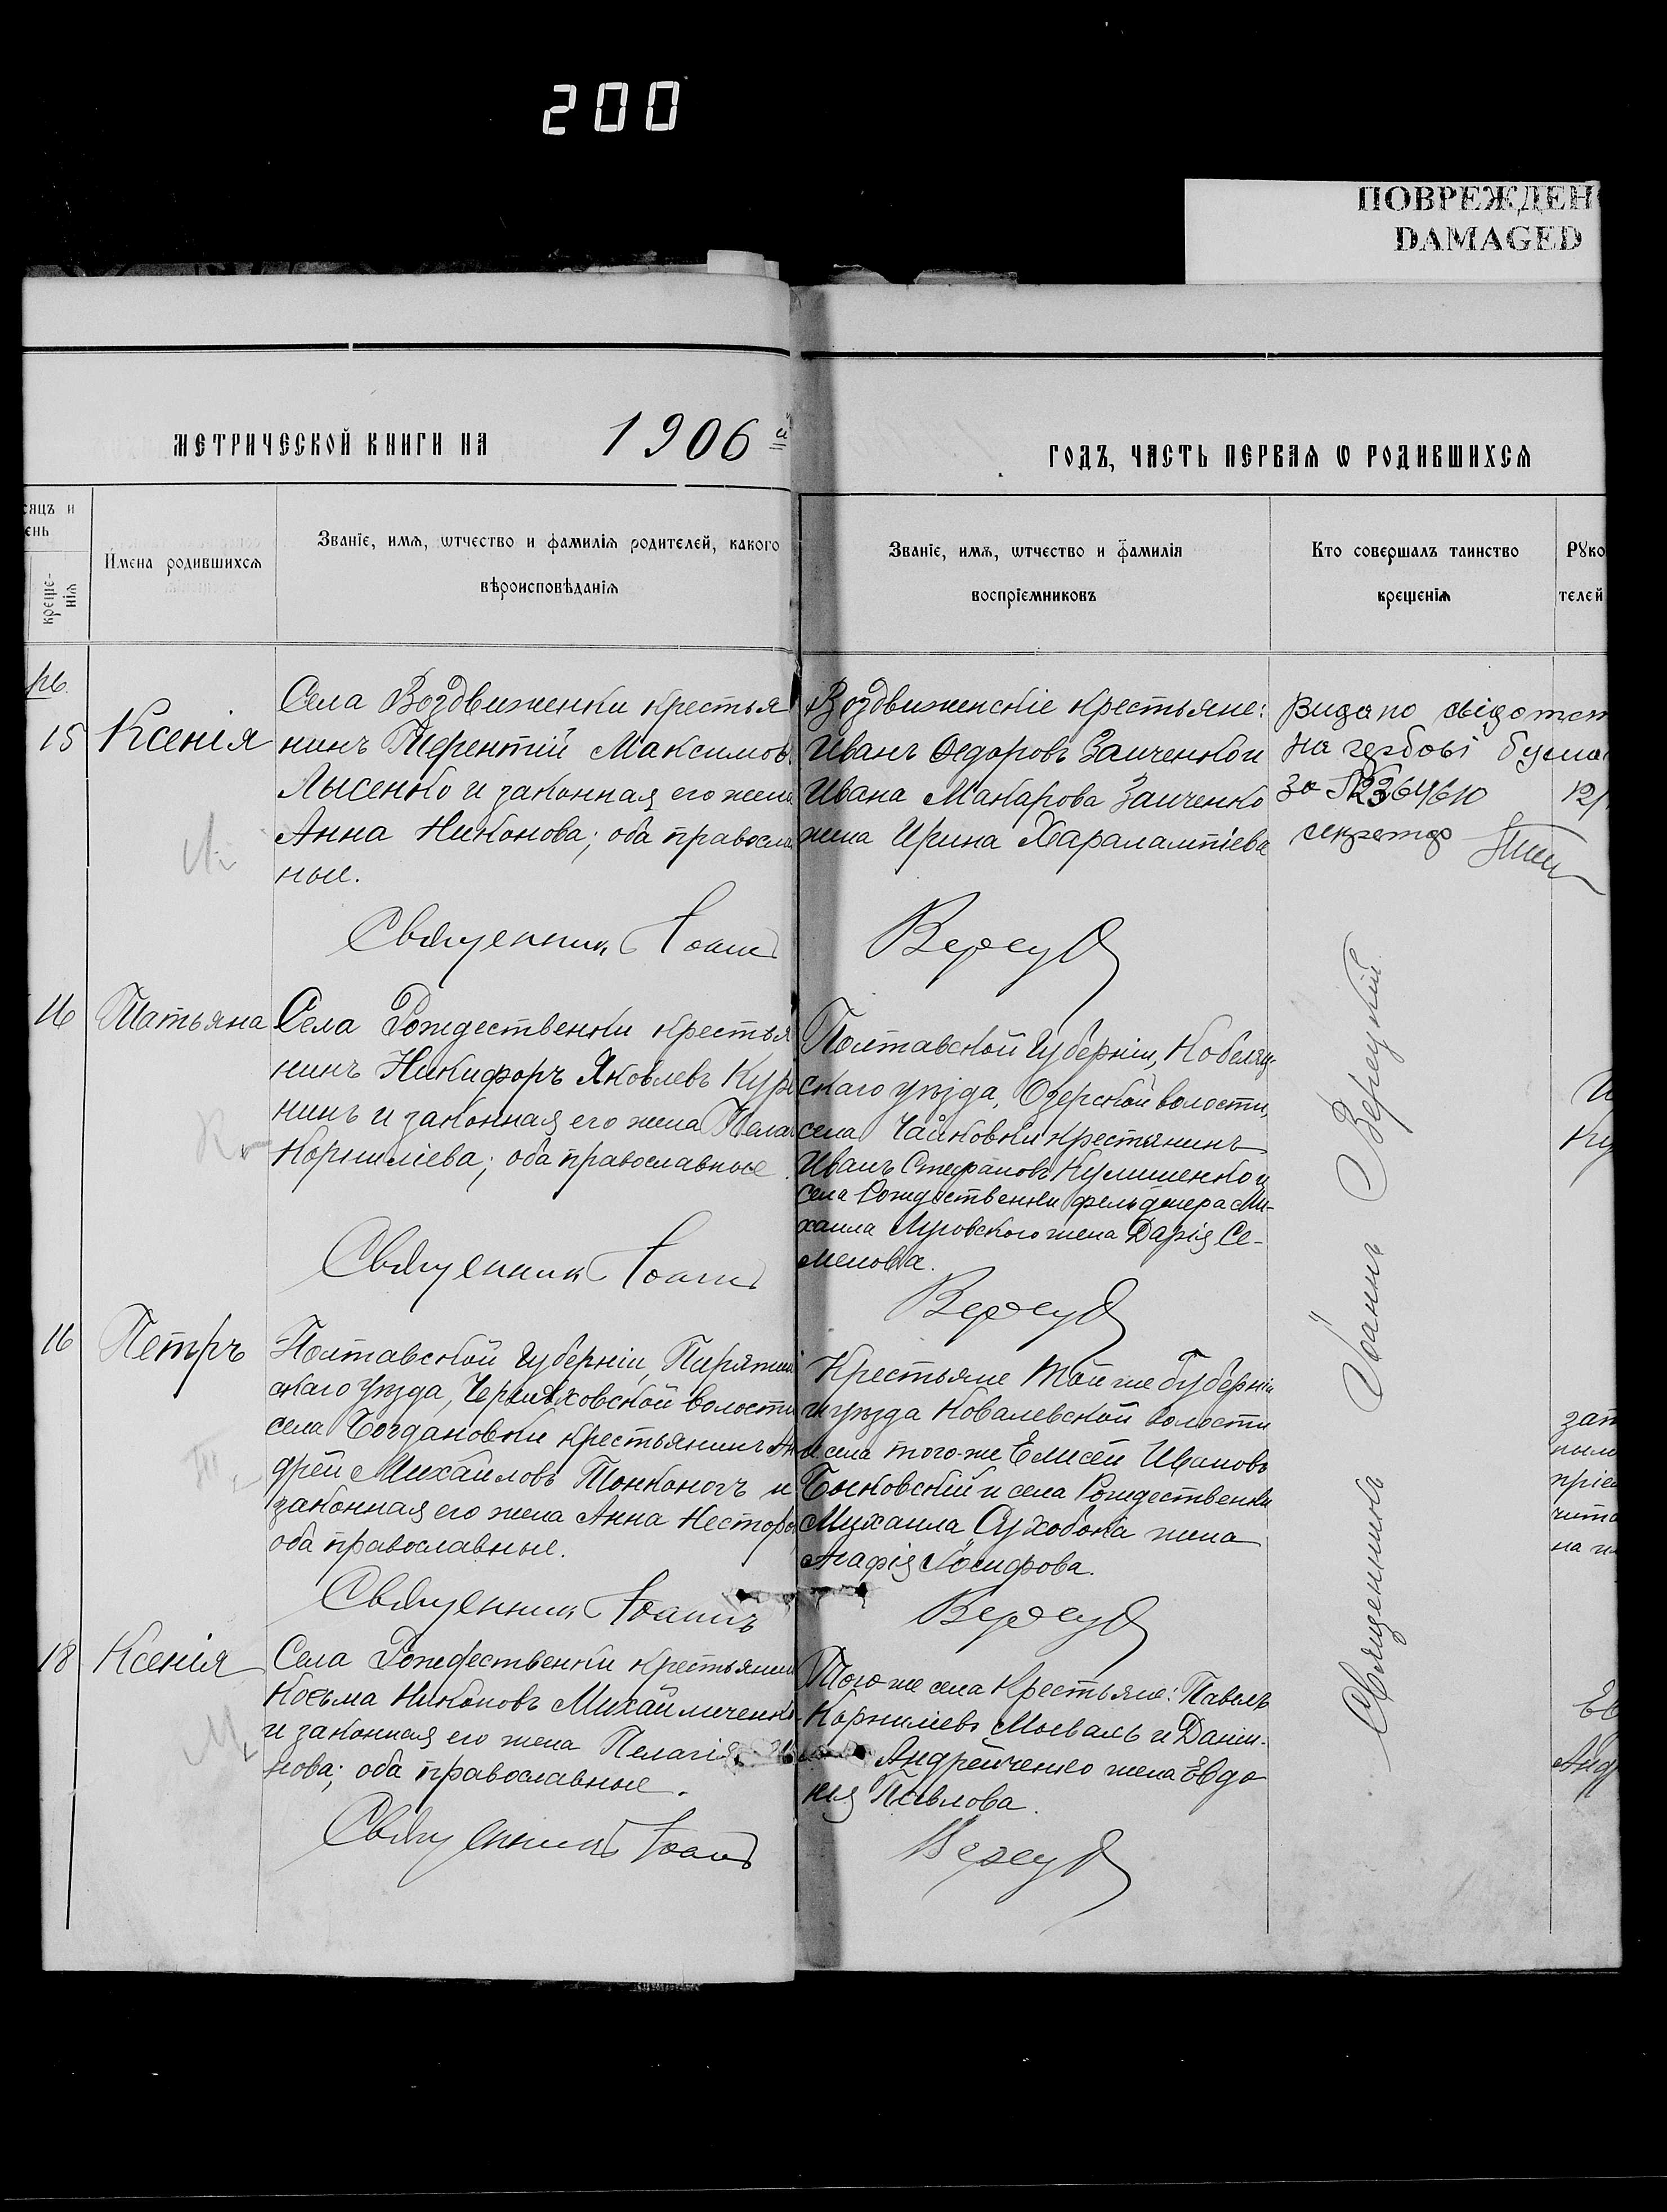 200
ПОВРЕЖДЕНО
DAMAGED
МЕТРИЧЕСКОЙ КНИГИ НА 1906 й
ГОДЪ, ЧАСТЬ ПЕРВАЯ Ѡ РОДИВШИХСЯ
сяцъ и
ень
креще-
нія
Имена родившихся
Званіе, имя, ѡтчество и фамилія родителей, какого
вѣроисповѣданія
Званіе, имя, ѡтчество и фамилія
воспріемниковъ
Кто совершалъ таинство
крещенія
Рꙋко
телей
15 Ксенія
Села Воздвиженки крестья
нинъ Терентій Максимов
Лысенко и законная его жена
Анна Никонова; оба правосла
ные.
Священник Іоанн
Воздвиженскіе крестьяне:
Иванъ Ѳедоровъ Заиченко и
Ивана Макарова Заиченко
жена Ирина Харалампіева
Вересуб
Видано свідотст
на гербові бума
за № 2364610 12/
секретар
16 Татьяна
Села Рождественки крестья
нинъ Никифоръ Яковлевъ Кур
нинъ и законная его жена Пела
Корниліева; оба православные
Священник Іоанн
Полтавской губерніи, Кобеляц
скаго уѣзда, Озерской волости,
села Чайковки крестянинъ
Иванъ Стефановъ Кулишенко и
села Рождественки фельдшера Ми-
хаила Луговского жена Дарія Се-
менова.
Вересуб
16 Петръ
Полтавской губерніи, Пирятин
скаго уѣзда, Черняховской волости
села Богдановки крестьянинъ Ан
дрей Михайловъ Тонконогъ и
законная его жена Анна Несторо
оба православные.
Священник Іоаннъ
Крестьяне той же губерніи
и уѣзда Ковалевской волости
и села того-же Елисей Ивановъ
Быковскій и села Рождественки
Михаила Сухобока жена
Агафія Іосифова.
Вересуб
18 Ксенія
Села Рождественки крестьянин
Косьма Никоновъ Михайличенко
и законная его жена Пелагія
нова; оба православные.
Священник Іоанн
Того же села крестьяне: Павелъ
Корниліевъ Мосваль и Даніи-
Андрейченко жена Евдо
кія Павлова.
Вересуб
Священникъ Іоаннъ Вересубкій